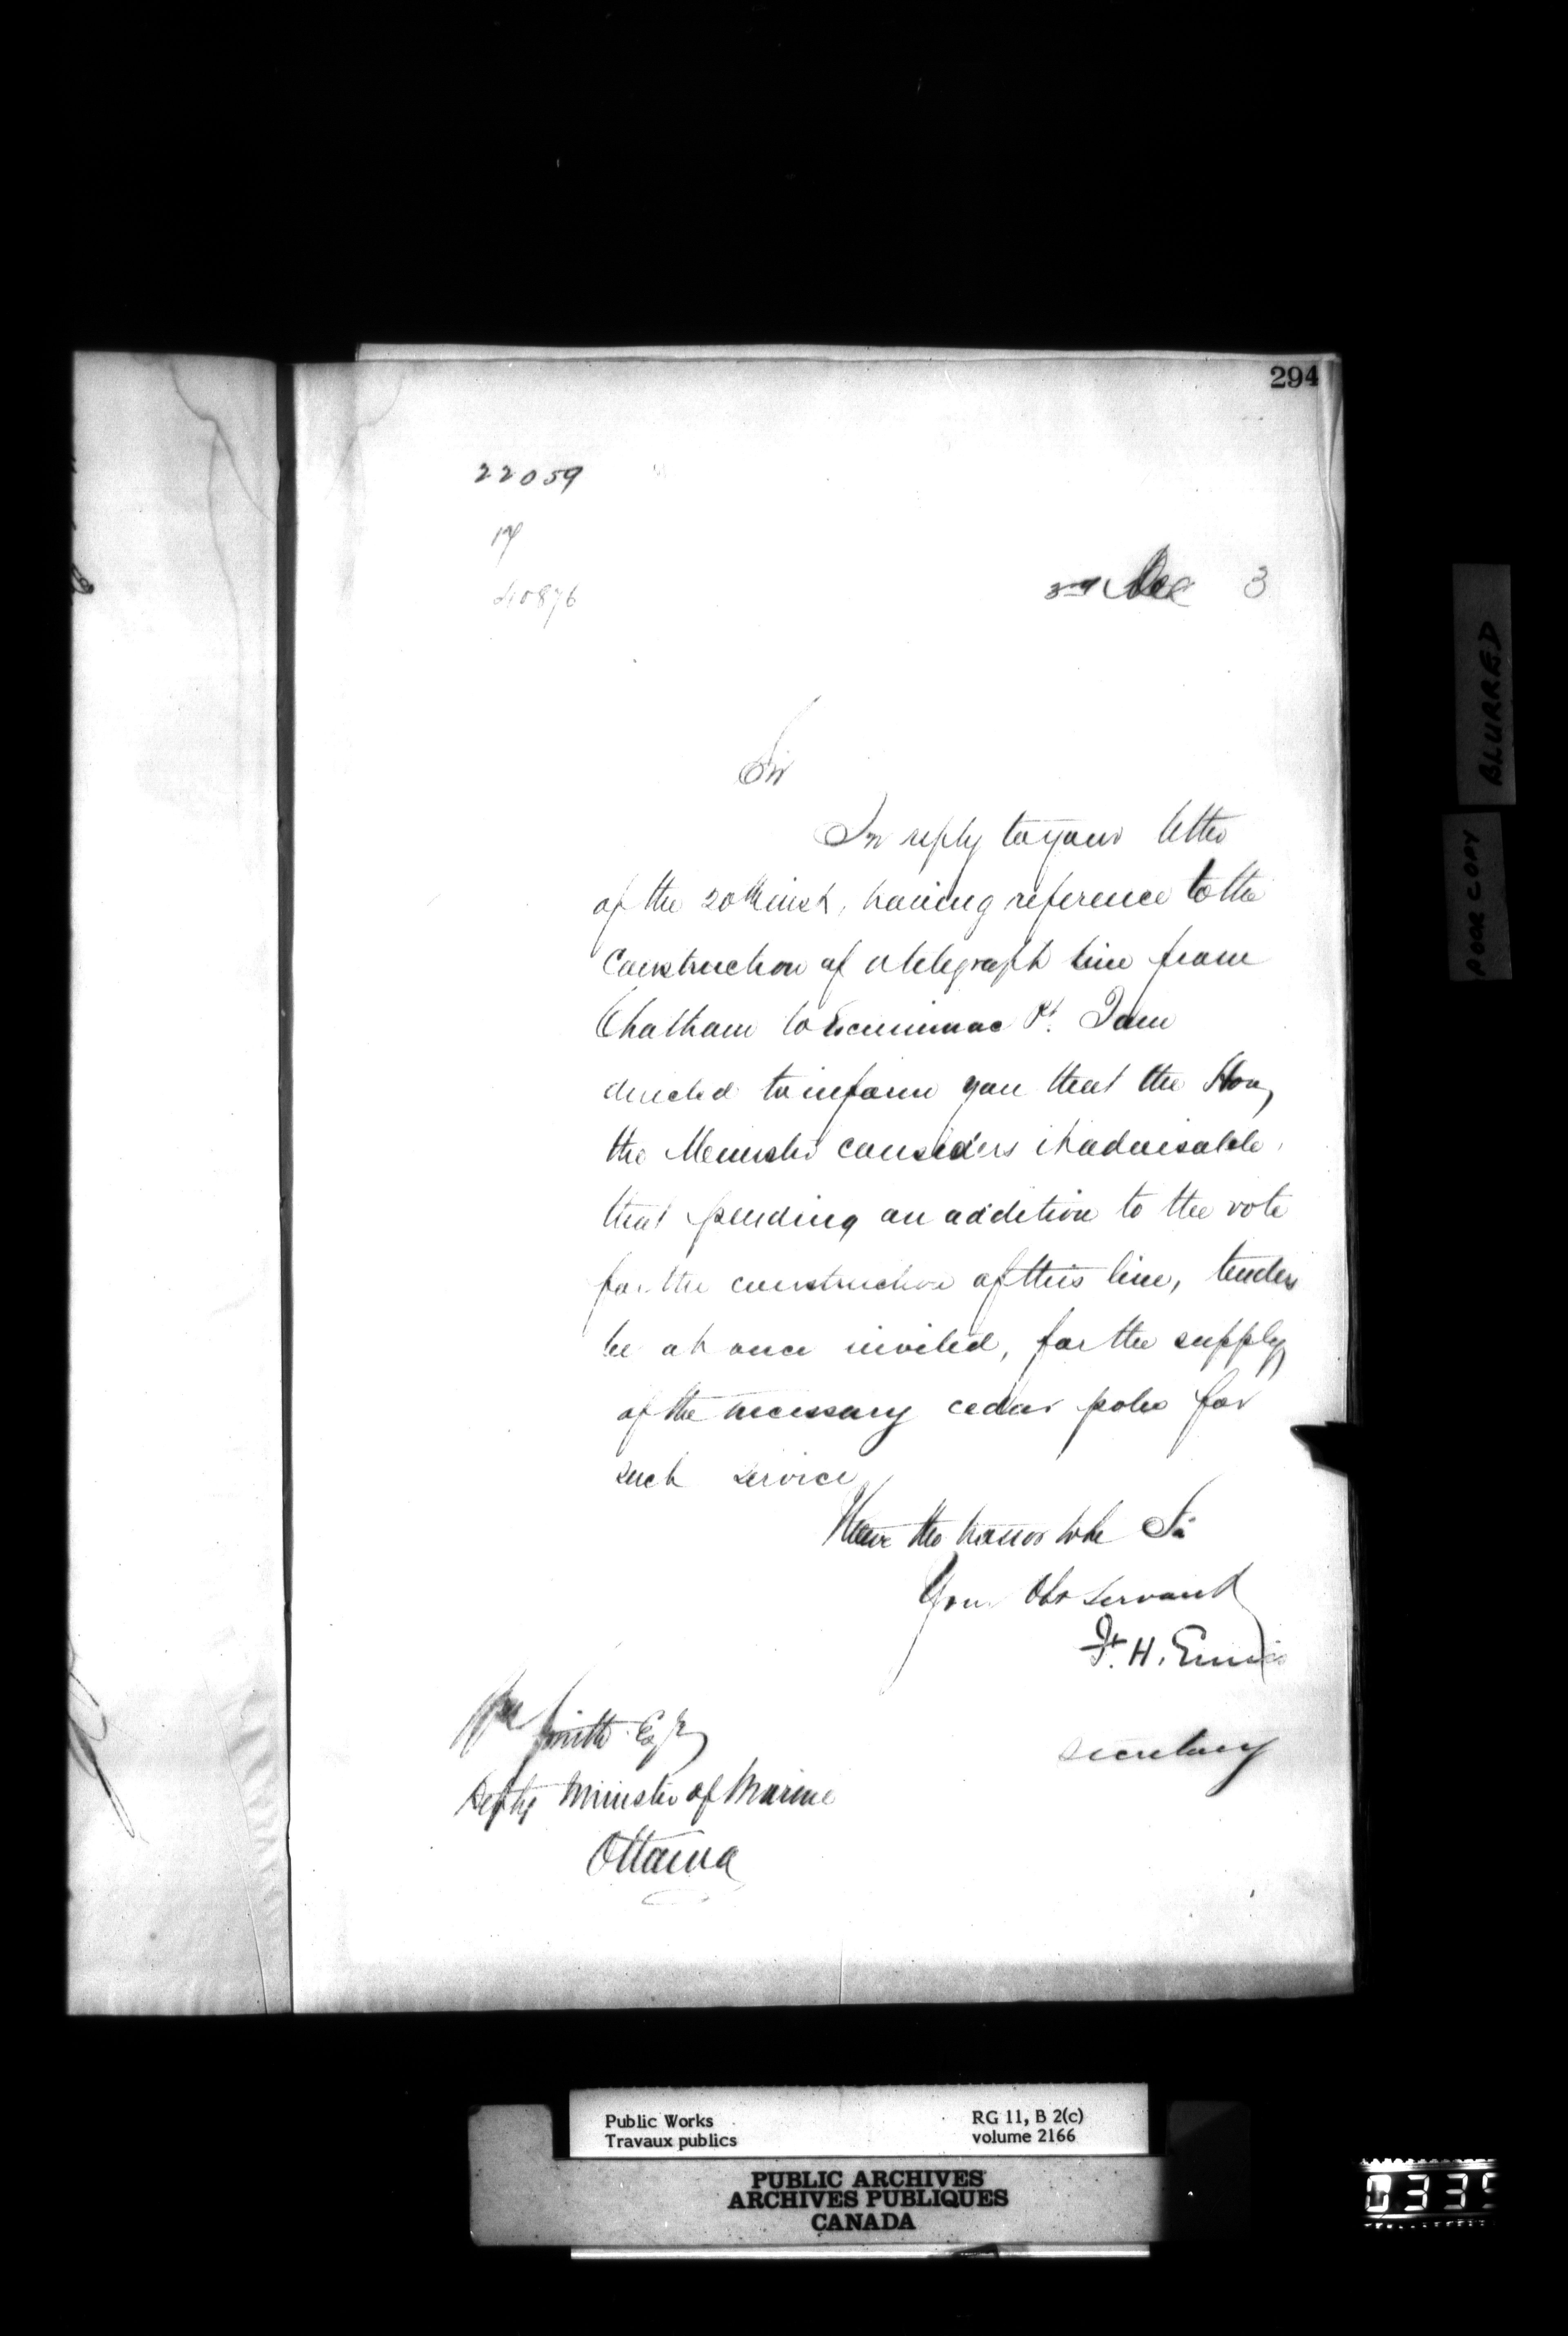 294
22059
40876
3rd Dec 3
Sir
In reply to your letter
of the 20th inst, having reference to the
Construction of a telegraph line from
Chatham to Escuminac Pt. I am
directed to inform you that the Hon,
the Minister considers it advisable,
that pending an addition to the vote
for the construction of this line, tenders
be at once invited, for the supply
of the necessary cedar poles for
such service
Have the honor to be Sir
Your Obt Servant
F. H. Ennis
Secretary
Wm Smith Esqr
Depty Minister of Marine
Ottawa
BLURRED
POOR COPY
Public Works RG 11, B 2(c)
Travaux publics volume 2166
PUBLIC ARCHIVES
ARCHIVES PUBLIQUES
CANADA
0335